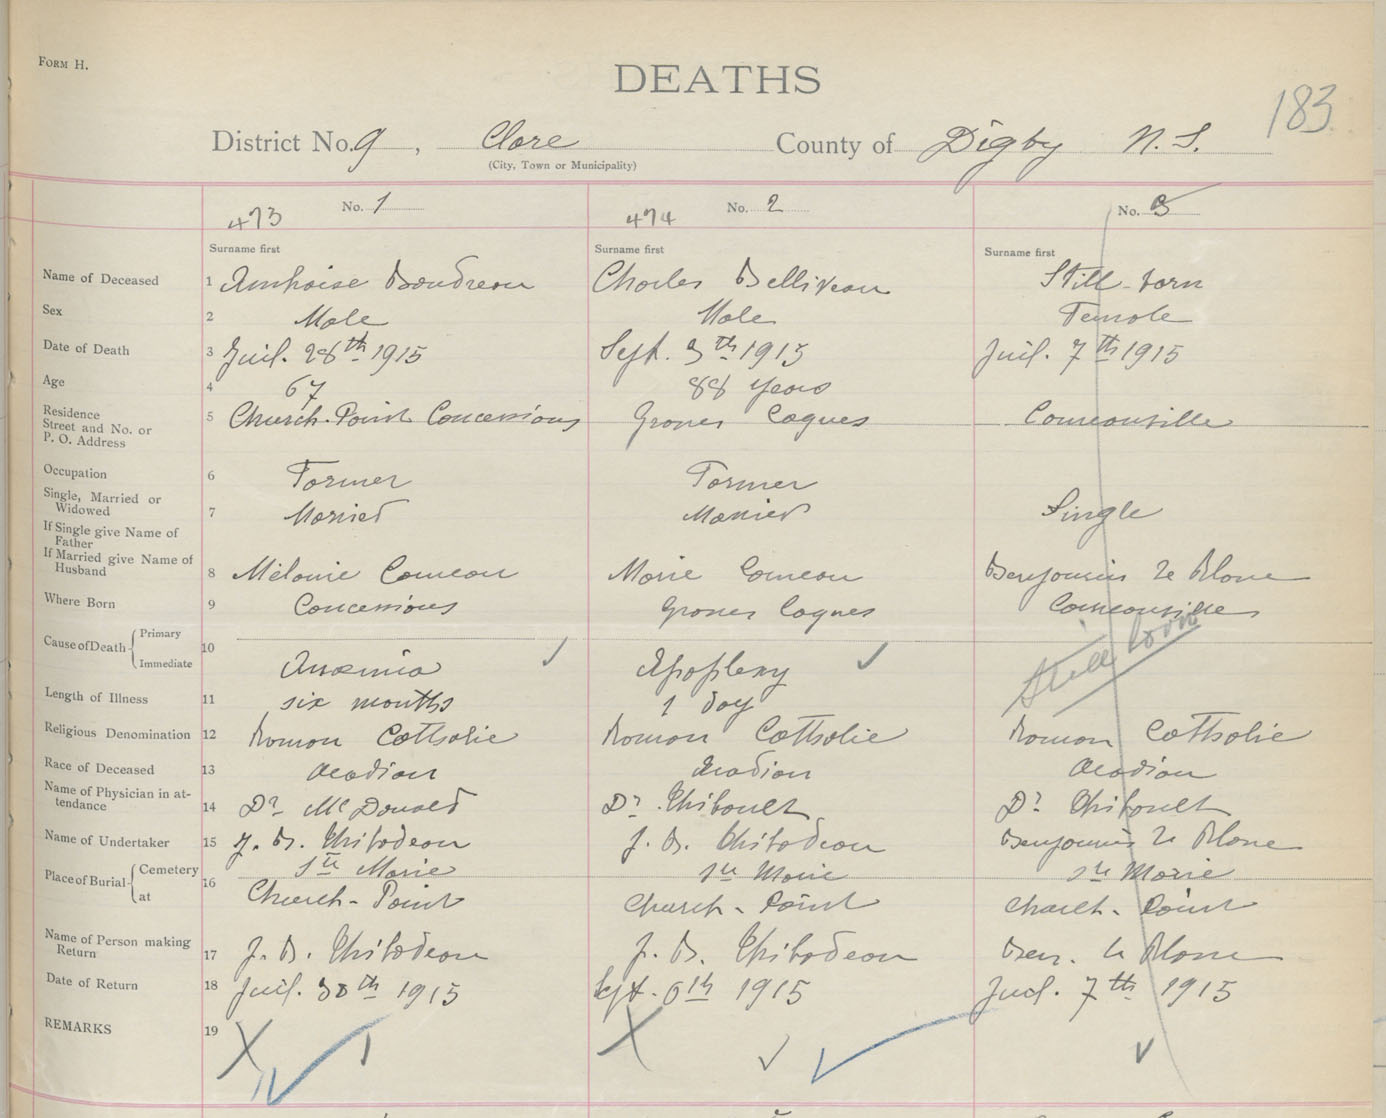 FORM H.
DEATHS
183
District No. 9, Clare County of Digby N. S.
(City, Town or Municipality)
473 No. 1 474 No. 2 No. 3
Surname first Surname first Surname first
Name of Deceased 1 Ambroise Boudreau Charles Belliveau Still-born
Sex 2 Male Male Female
Date of Death 3 Juil. 28th 1915 Sept. 3th 1915 Juil. 7th 1915
Age 4 67 88 years
Residence
Street and No. or
P. O. Address 5 Church-Point Concessions Grosses Coques Comeauville
Occupation 6 Farmer Farmer
Single, Married or
Widowed 7 Married Married Single
If Single give Name of
Father
If Married give Name of
Husband 8 Mélanie Comeau Marie Comeau Benjamin Le Blanc
Where Born 9 Concessions Grosses Coques Comeauville
Cause of Death Primary
Immediate 10 Anæmia Apoplexy Still born
Length of Illness 11 six months 1 day
Religious Denomination 12 Roman Catholic Roman Catholic Roman Catholic
Race of Deceased 13 Acadian Acadian Acadian
Name of Physician in at-
tendance 14 Dr McDonald Dr Thibault Dr Thibault
Name of Undertaker 15 J. B. Thibodeau J. B. Thibodeau Benjamin Le Blanc
Place of Burial Cemetery 16 Ste Marie Ste Marie Ste Marie
at Church-Point Church-Point Church-Point
Name of Person making
Return 17 J. B. Thibodeau J. B. Thibodeau Ben. Le Blanc
Date of Return 18 Juil. 30th 1915 Sept. 6th 1915 Juil. 7th 1915
REMARKS 19